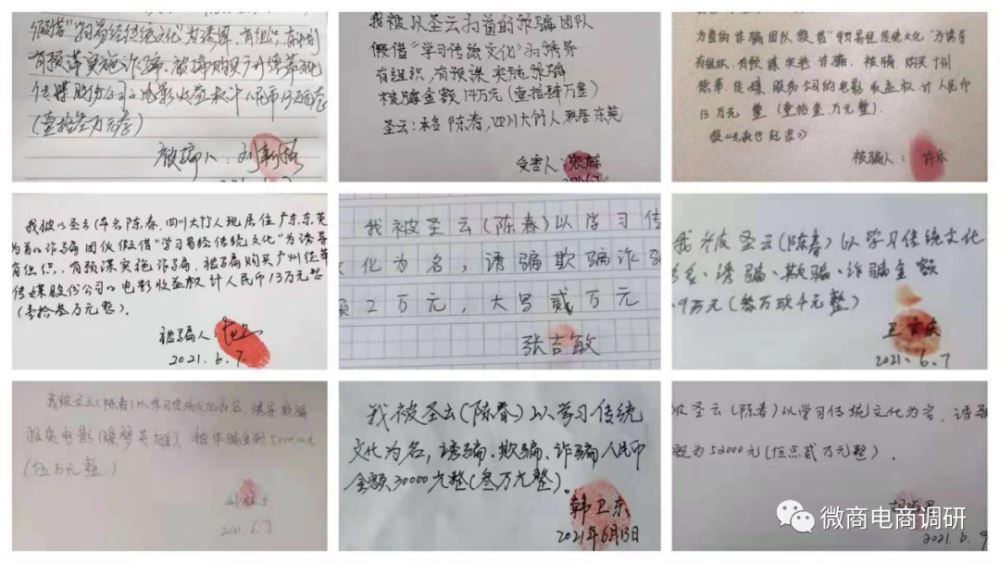 假借"习易经传统文化"为诱导,有组织,有
有预谋实施诈骗,被骗购买广州
传媒股份公司电影收益权计人民币13万元整
(壹拾叁万元整)
被骗人:刘
2021.6.7
我被以圣云为首的诈骗团队
假借"学习传统文化"为诱导
有组织,有预谋实施诈骗
被骗金额14万元(壹拾肆万圆)
圣云:本名陈春,四川大竹人,现居东莞
受害人:张
为首的诈骗团队假借"习易经传统文化"为诱导
有组织、有预谋实施诈骗,被骗购买广州
传媒股份公司的电影收益权计人民币
13万元整(壹拾叁万元整).
被骗人:许乐
我被以圣云(本名陈春,四川大竹人现居住广东东莞
为首)诈骗团伙假借"学习易经传统文化"为诱导
有组织,有预谋实施诈骗,被骗购买广州
传媒股份公司电影收益权计人民币13万元整
(壹拾叁万元整).
被骗人
2021.6.7.
我被圣云(陈春)以学习传
文化为名,诱骗欺骗诈骗
额2万元,大写贰万元
张吉敏
我被圣云(陈春)以学习传统文化
为名、诱骗、欺骗、诈骗金额
.9万元(叁万玖千元整)
卫
2021.6.7
我被圣云(陈春)以学习传统文化为名,诱导欺骗
投资电影
(伍万元整)
刘
2021.6.7
我被圣云(陈春)以学习传统
文化为名,诱骗、欺骗、诈骗人民币
金额30000元整(叁万元整)。
韩卫东
2021年6月13日
被圣云(陈春)以学习传统文化为名、诱骗
额为52000元(伍点贰万元整).
胡
2021.6.9
微商电商调研